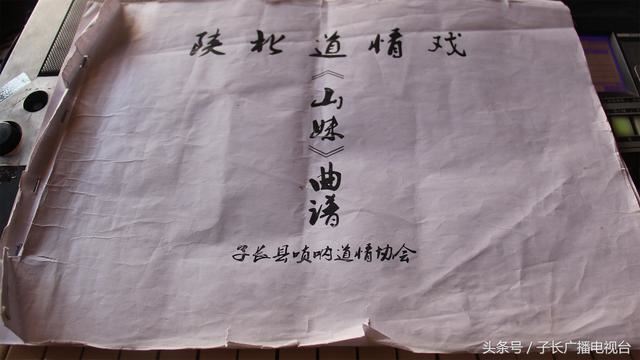 陕北道情戏
《山妹》曲谱
子长县唢呐道情协会
头条号／子长广播电视台